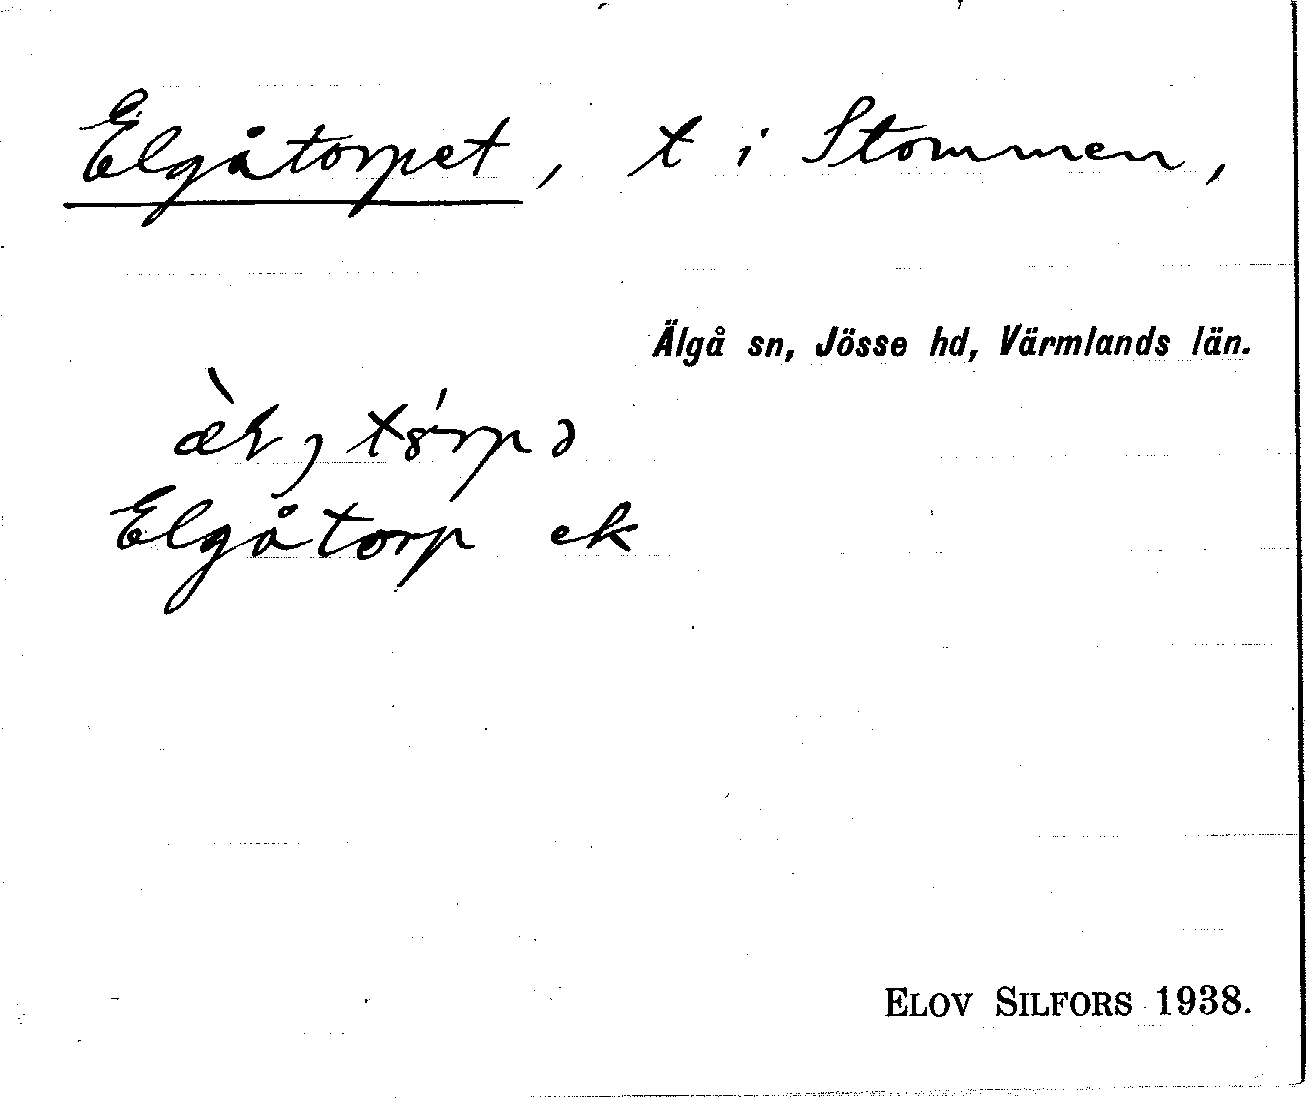 Elgåtorpet, t i Stommen,
Älgå sn, Jösse hd, Värmlands län.
Elgåtorp ek
ELOV SILFORS 1938.